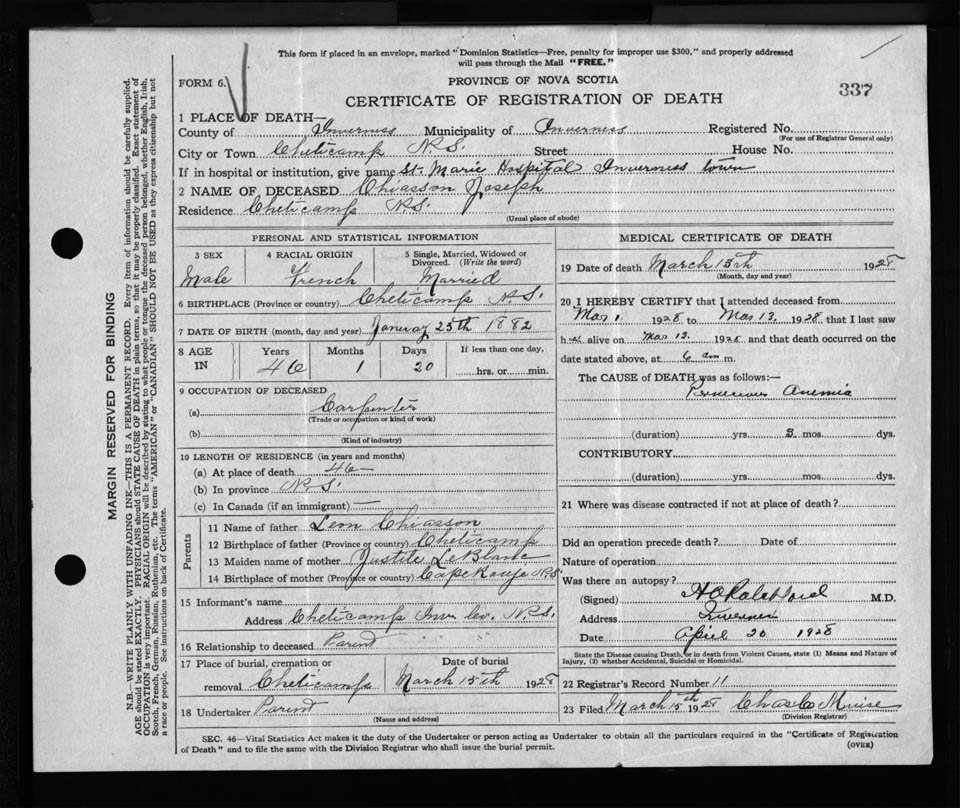 This form if placed in an envelope, marked "Dominion Statistics—Free, penalty for improper use $300," and properly addressed
will pass through the Mail "FREE."
FORM 6.
PROVINCE OF NOVA SCOTIA
337
CERTIFICATE OF REGISTRATION OF DEATH
1 PLACE OF DEATH—
County of Inverness Municipality of Inverness Registered No.
(For use of Registrar General only)
City or Town Cheticamp N.S. Street House No.
If in hospital or institution, give name St. Marie Hospital Inverness town
2 NAME OF DECEASED Chiasson Joseph
Residence Cheticamp N.S.
(Usual place of abode)
PERSONAL AND STATISTICAL INFORMATION
3 SEX 4 RACIAL ORIGIN 5 Single, Married, Widowed or
Divorced. (Write the word)
Male French Married
6 BIRTHPLACE (Province or country) Cheticamp N.S.
7 DATE OF BIRTH (month, day and year) 25th 1882
8 AGE IN Years Months Days If less than one day,
46 1 20 hrs. or min.
9 OCCUPATION OF DECEASED
(a) Carpenter
(Trade or occupation or kind of work)
(b)
(Kind of industry)
10 LENGTH OF RESIDENCE (in years and months)
(a) At place of death 46—
(b) In province N.S.
(c) In Canada (if an immigrant) —
Parents
11 Name of father Chiasson
12 Birthplace of father (Province or country) Cheticamp
13 Maiden name of mother LeBlanc
14 Birthplace of mother (Province or country) Cape Rouge N.S.
15 Informant's name
Address Cheticamp Inv. Co. N.S.
16 Relationship to deceased Parent
17 Place of burial, cremation or Date of burial
removal Cheticamp March 15th 1928
18 Undertaker Parent
(Name and address)
MEDICAL CERTIFICATE OF DEATH
19 Date of death March 1928
(Month, day and year)
20 I HEREBY CERTIFY that I attended deceased from
Mar 1. 1928 to Mar 13, 1928 that I last saw
him alive on Mar 13. 1928 and that death occurred on the
date stated above, at 6 am m.
The CAUSE OF DEATH was as follows:—
Anemia
(duration) yrs. 3 mos. dys.
CONTRIBUTORY
(duration) yrs. mos. dys.
21 Where was disease contracted if not at place of death?
Did an operation precede death? Date of
Nature of operation
Was there an autopsy?
(Signed) M.D.
Address
Date April 20 1928
State the Disease causing Death, or in death from Violent Causes, state (1) Means and Nature of
Injury, (2) whether Accidental, Suicidal or Homicidal.
22 Registrar's Record Number 11
23 Filed March 15th 1928 Chas
(Division Registrar)
SEC. 46—Vital Statistics Act makes it the duty of the Undertaker or person acting as Undertaker to obtain all the particulars required in the "Certificate of Registration
of Death" and to file the same with the Division Registrar who shall issue the burial permit.
(OVER)
MARGIN RESERVED FOR BINDING
N.B.—WRITE PLAINLY WITH UNFADING INK—THIS IS A PERMANENT RECORD. Every item of information should be carefully supplied.
AGE should be stated EXACTLY. PHYSICIANS should STATE CAUSE OF DEATH in plain terms, so that it may be properly classified. Exact statement of
OCCUPATION is very important. RACIAL ORIGIN will be described by stating to what people or tongue the deceased person belonged, whether English, Irish,
Scotch, French, German, Russian, Ruthenian, etc. The terms "AMERICAN" or "CANADIAN" SHOULD NOT BE USED as they express citizenship but not
a race or people. See instructions on back of Certificate.